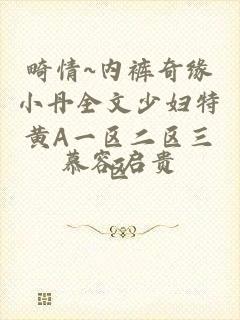 畸情~内裤奇缘
小丹全文少妇特
黄A一区二区三
区
慕容启贵